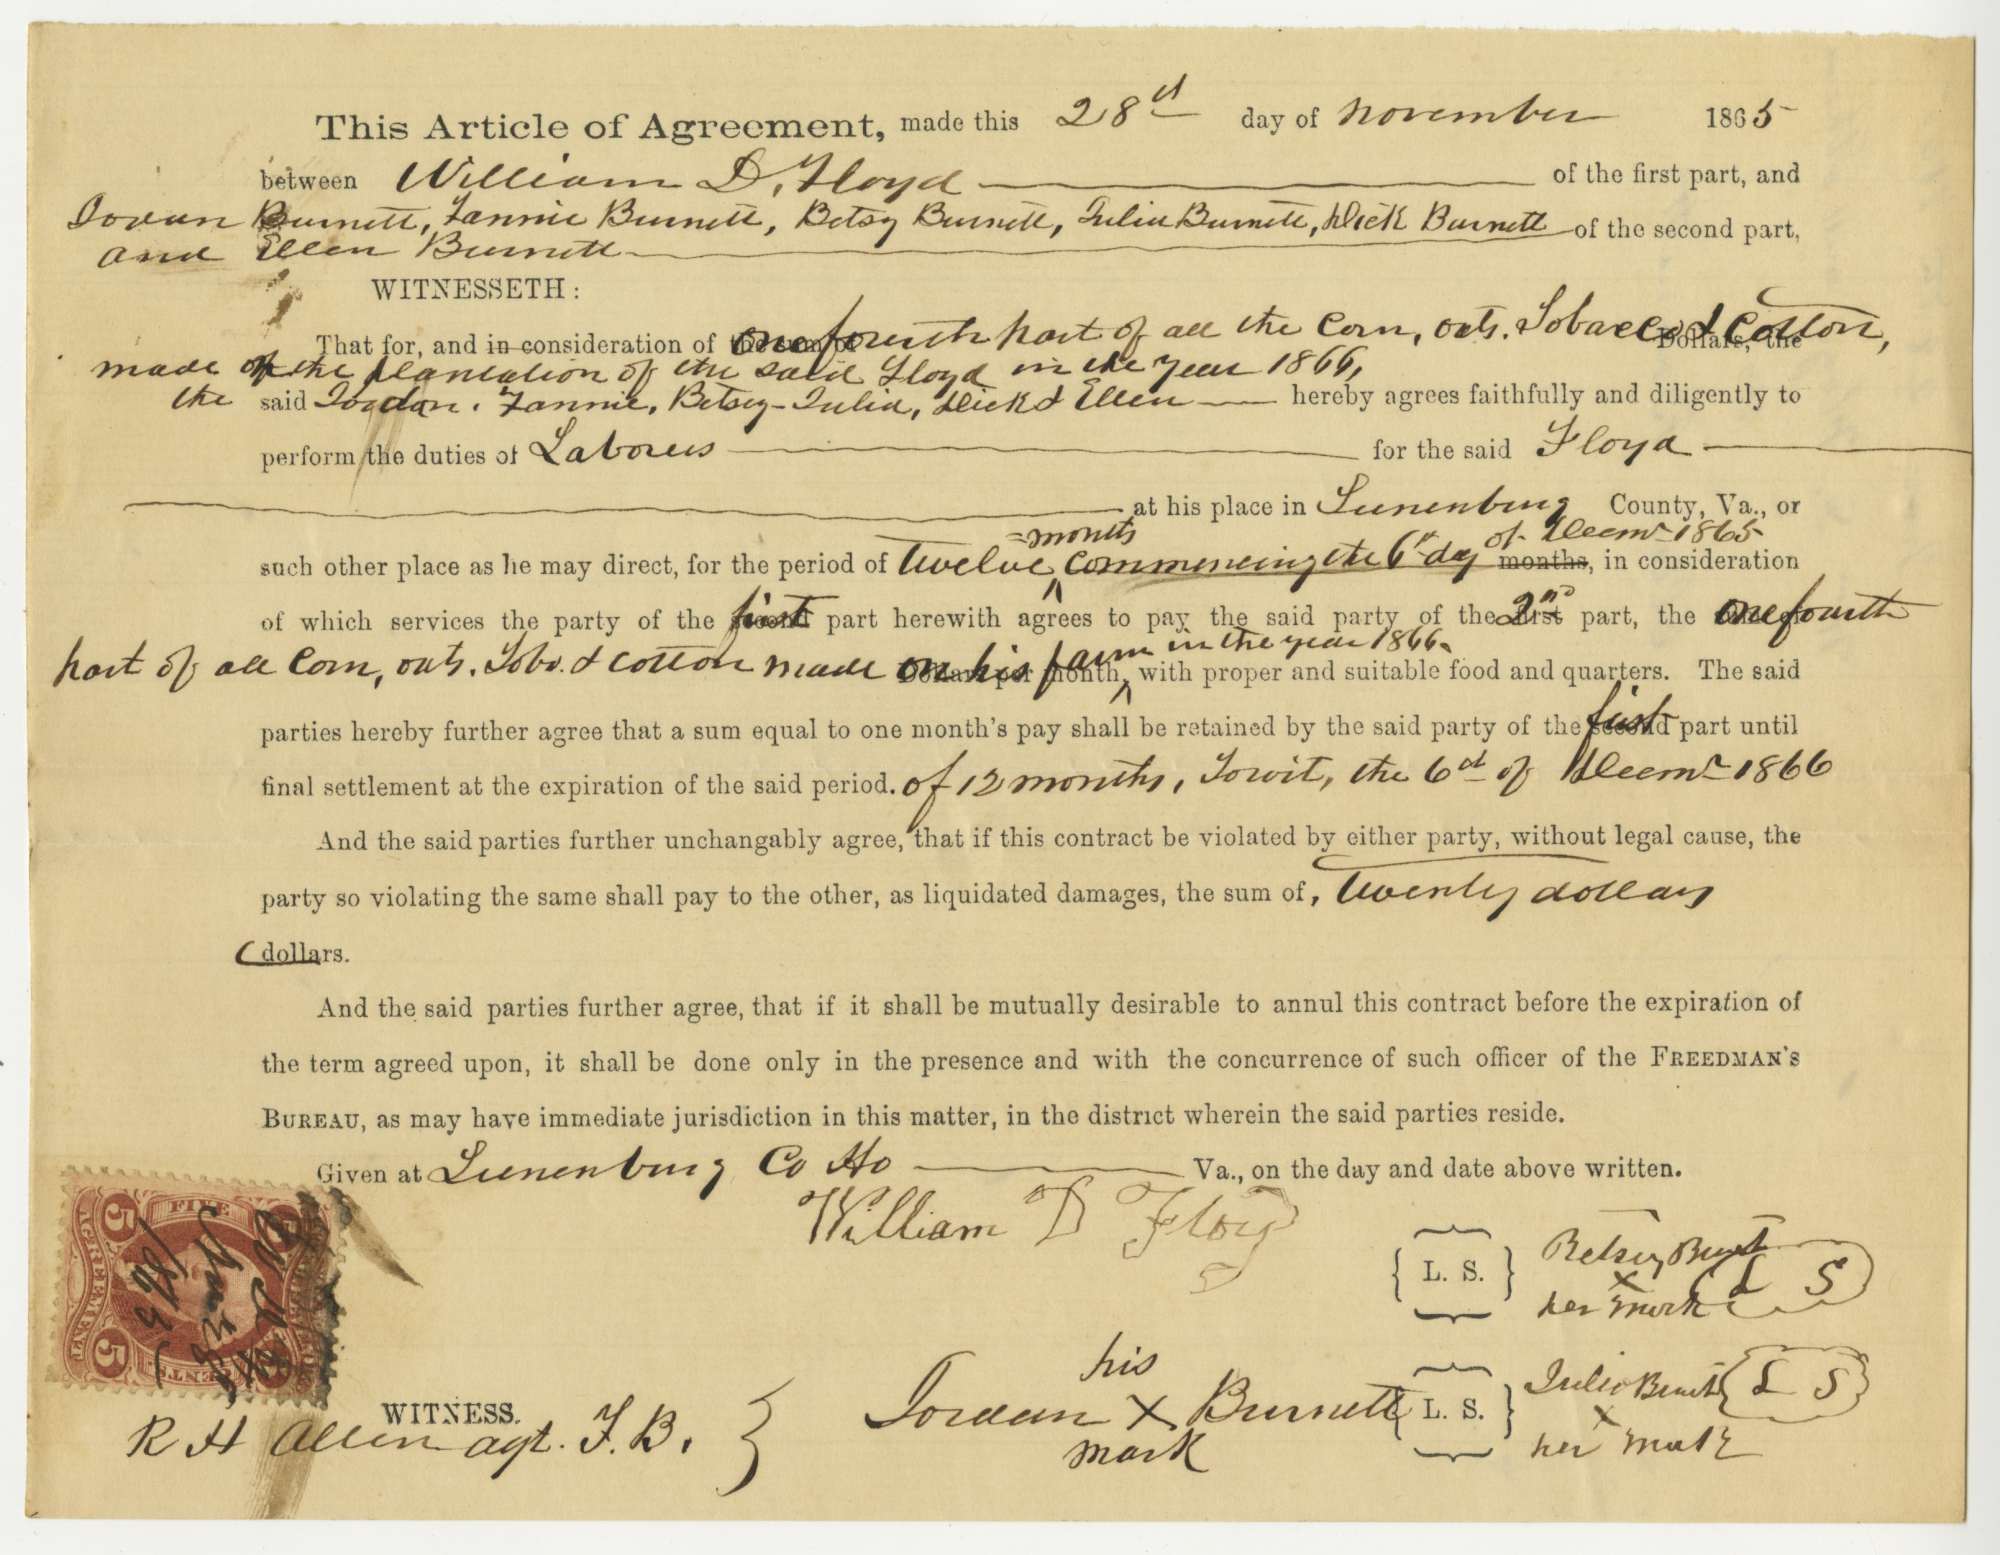 This Article of Agreement, made this 28th day of November 1865
between William D. Floyd of the first part, and
Jordan Burnett, Fannie Burnett, Betsy Burnett, Julia Burnett, Dick Burnett of the second part,
and Ellen Burnett
WITNESSETH:
That for, and in consideration of one fourth part of all the Corn, oats, Tobacco & Cotton, Dollars, the
made on the plantation of the said Floyd in the year 1866,
the said Jordan, Fannie, Betsey, Julia, Dick & Ellen hereby agrees faithfully and diligently to
perform the duties of Laborers for the said Floyd
at his place in Lunenburg County, Va., or
months of Decmr 1865
such other place as he may direct, for the period of Twelve Commencing the 6th day months, in consideration
of which services the party of the first part herewith agrees to pay the said party of the 2nd part, the one fourth
in the year 1866.
part of all Corn, oats, Tobo. & Cotton made on his farm Dollars per month, with proper and suitable food and quarters. The said
parties hereby further agree that a sum equal to one month's pay shall be retained by the said party of the first part until
final settlement at the expiration of the said period. of 12 months, Towit, the 6th of Decmr 1866
And the said parties further unchangably agree, that if this contract be violated by either party, without legal cause, the
party so violating the same shall pay to the other, as liquidated damages, the sum of, Twenty dollars
dollars.
And the said parties further agree, that if it shall be mutually desirable to annul this contract before the expiration of
the term agreed upon, it shall be done only in the presence and with the concurrence of such officer of the FREEDMAN'S
BUREAU, as may have immediate jurisdiction in this matter, in the district wherein the said parties reside.
Given at Lunenburg Co Ho Va., on the day and date above written.
William D Floyd
L. S. Betsey Burnt L S
her x mark
his
Jordan x Burnett L. S. Julia Burnt L S
mark
x
her mark
WITNESS.
R H Allen agt. F. B.
5 FIVE 5
AGREEMENT
CENTS
5 5
1865